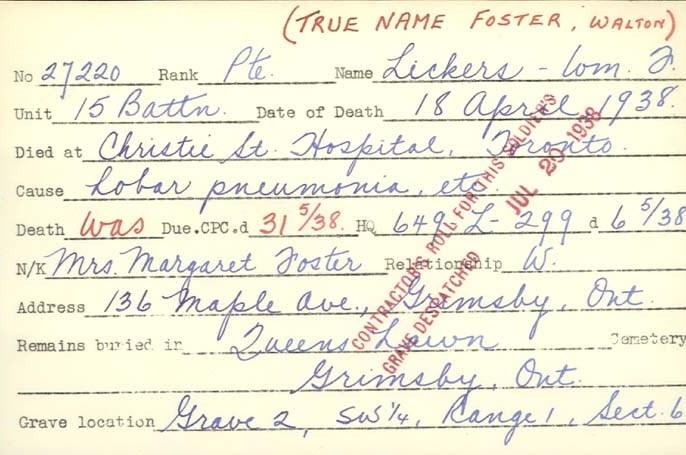 (TRUE NAME FOSTER, WALTON)
No 27220 Rank Pte. Name Lickers - Wm. F.
Unit 15 Battn. Date of Death 18 April 1938.
Died at Christie St. Hospital, Toronto.
Cause Lobar pneumonia, etc.
Death Was Due.CPC.d 31 5/38. HQ 649-L-299 d 6 5/38
N/K Mrs. Margaret Foster Relationship W.
Address 136 Maple Ave., Grimsby, Ont.
Remains buried in Queens Lawn Cemetery
Grimsby, Ont.
Grave location Grave 2, SW 1/4, Range 1, Sect. 6
CONTRACTOR'S ROLL FOR THIS SOLDIER'S
GRAVE DESPATCHED JUL 20 1938